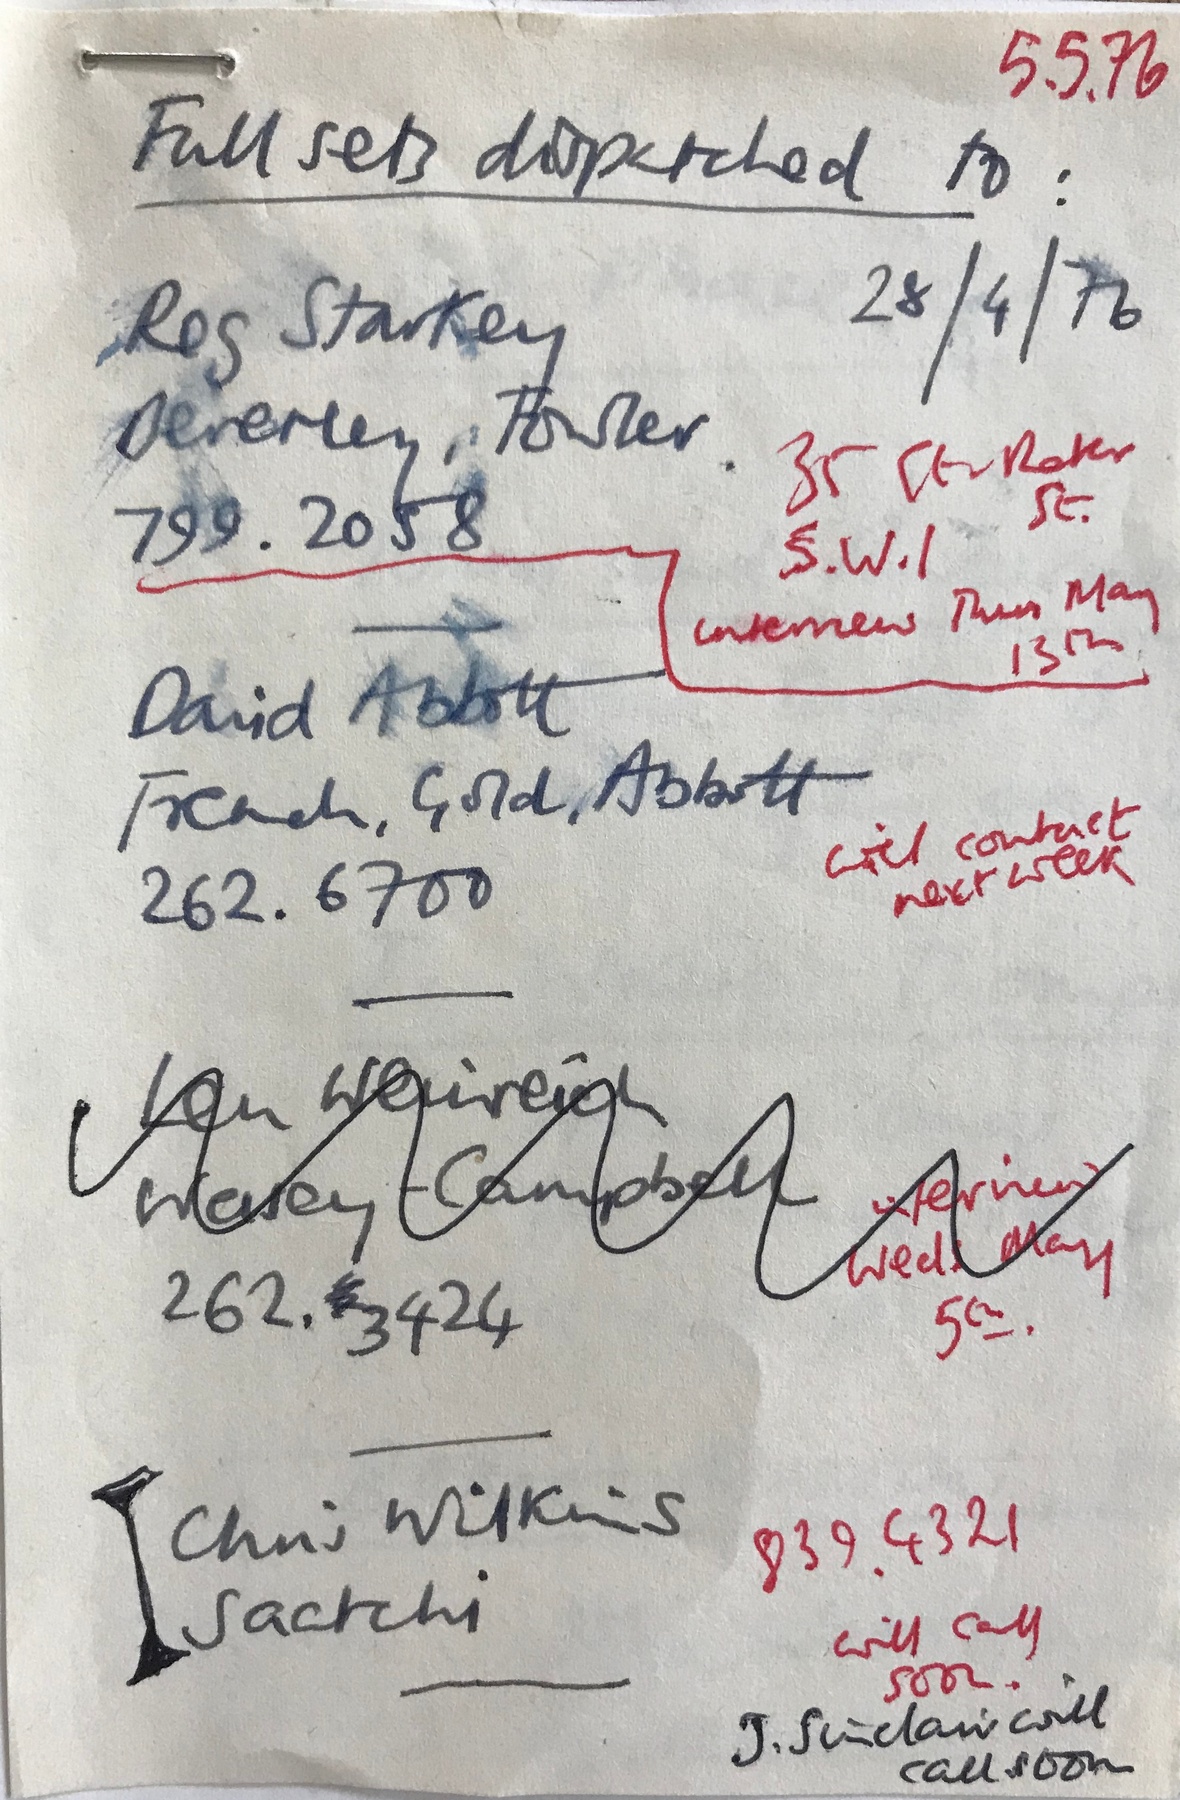 5.5.76
Full sets dispatched to :
28/4/76
Reg Starkey
Beverley, Fowler.
799.2058
35 Gt. Peter
St.
S.W.1
interview Thurs May
13th
David Abbott
French, Gold, Abbott
262.6700
will contact
next week
Len Weinreich
Wasey-Campbell
262.3424
interview
Weds May
5th.
Chris Wilkins
Saatchi
839.4321
will call
soon.
J. Sinclair will
call soon